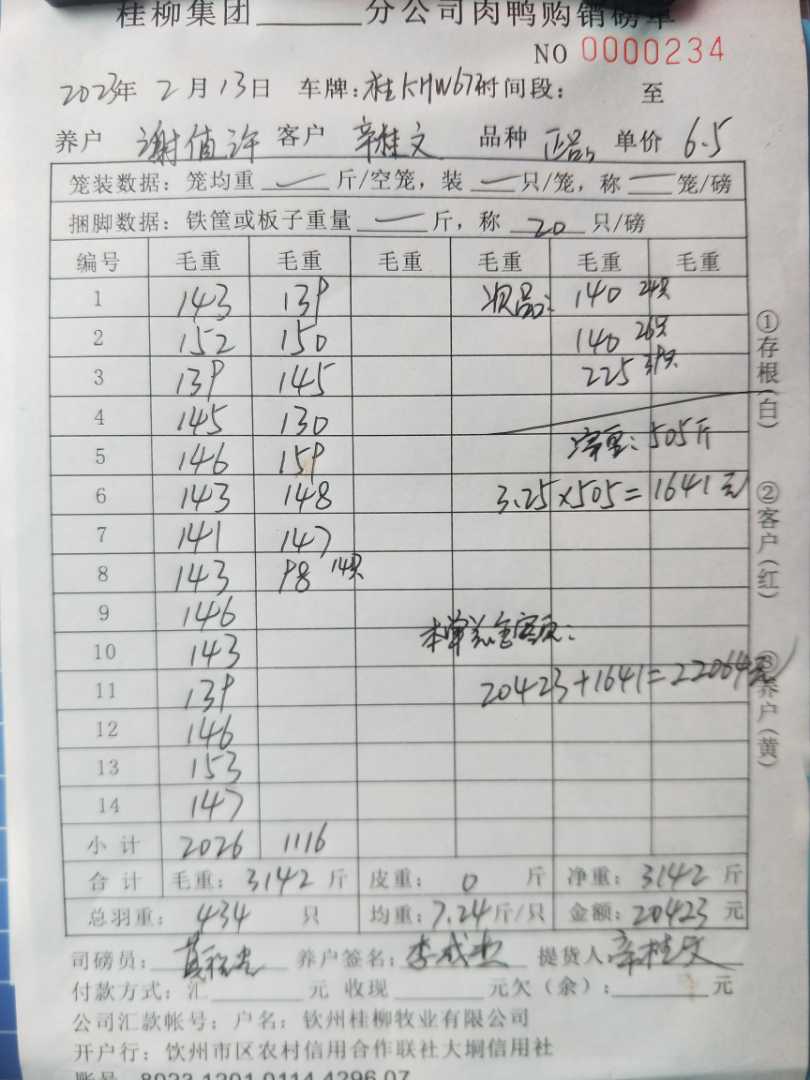 桂柳集团______分公司肉鸭购销磅单
NO 0000234
2023年 2月13日 车牌:桂KHW67时间段: 至
养户 谢值许 客户 辛桂文 品种 正品 单价 6.5
笼装数据:笼均重 — 斤/空笼,装 — 只/笼,称 — 笼/磅
捆脚数据:铁筐或板子重量 — 斤,称 20 只/磅
编号 毛重 毛重 毛重 毛重 毛重 毛重
1 143 139 次品: 140 24只
2 152 150 140 26只
3 139 145 225 39只
4 145 130
5 146 159 净重:505斤
6 143 148 3.25×505=1641元
7 141 147
8 143 98 14只
9 146 本单总金额为:
10 143
11 139 20423+1641=22064元
12 146
13 153
14 147
小计 2026 1116
合计 毛重: 3142 斤 皮重: 0 斤 净重: 3142 斤
总羽重: 434 只 均重: 7.24斤/只 金额: 20423 元
司磅员: 养户签名: 李成 提货人 辛桂文
付款方式:汇______元 收现______元欠(余):______元
公司汇款帐号:户名:钦州桂柳牧业有限公司
开户行:钦州市区农村信用合作联社大垌信用社
账号 8023 1201 0114 4296 07
①存根(白) ②客户(红) ③养户(黄)